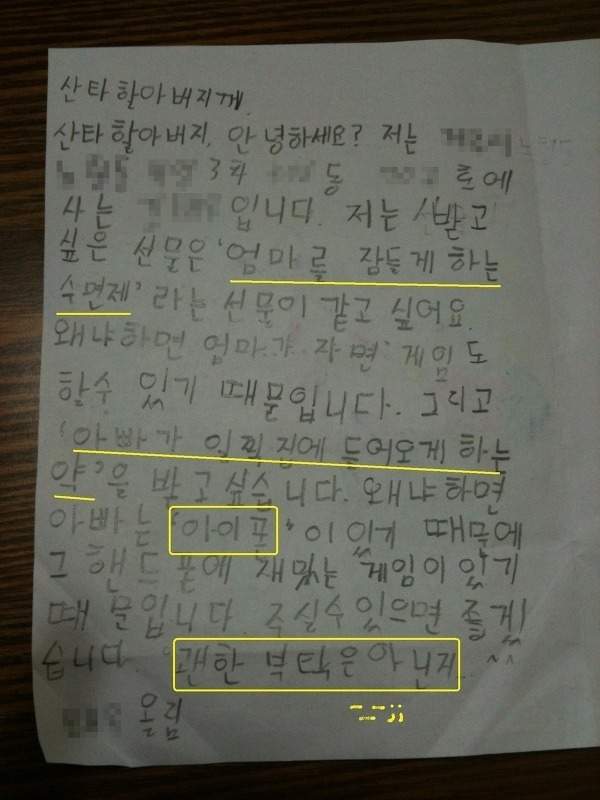 산타할아버지께
산타할아버지, 안녕하세요? 저는
3차 동 호에
사는 입니다. 저는 받고
싶은 선물은 '엄마를 잠들게 하는
수면제' 라는 선물이 같고 싶어요.
왜냐하면 엄마가 자면 게임도
할수 있기 때문입니다. 그리고
'아빠가 일찍 집에 들어오게 하는
약'을 받고싶습니다. 왜냐하면
아빠는 '아이폰'이 있기 때문에
그 핸드폰에 재밌는 게임이 있기
때문입니다. 주실수있으면 좋겠
습니다. 괜한 부탁은 아닌지...^^
올림
ㅡ.ㅡ;;